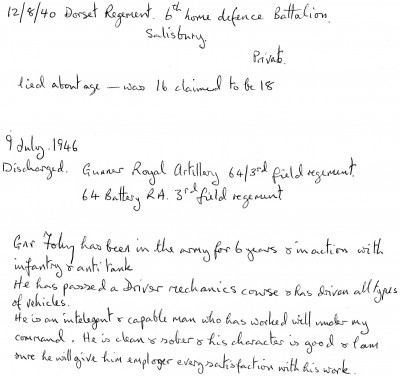 12/8/40 Dorset Regement. 6th home defence Battalion.
Salisbury.
Privat.
lied about age — was 16 claimed to be 18
9 July. 1946
Discharged. Gunner Royal Artillery 64/3rd field regement.
64 Battery R.A. 3rd field regement
Gnr Foley has been in the army for 6 years & in action with
infantry & anti tank
He has passed a Driver mechanics course & has driven all types
of vehicles.
He is an intelegent & capable man who has worked well under my
command. He is clean & sober & his character is good & I am
sure he will give him employer every satisfaction with his work.